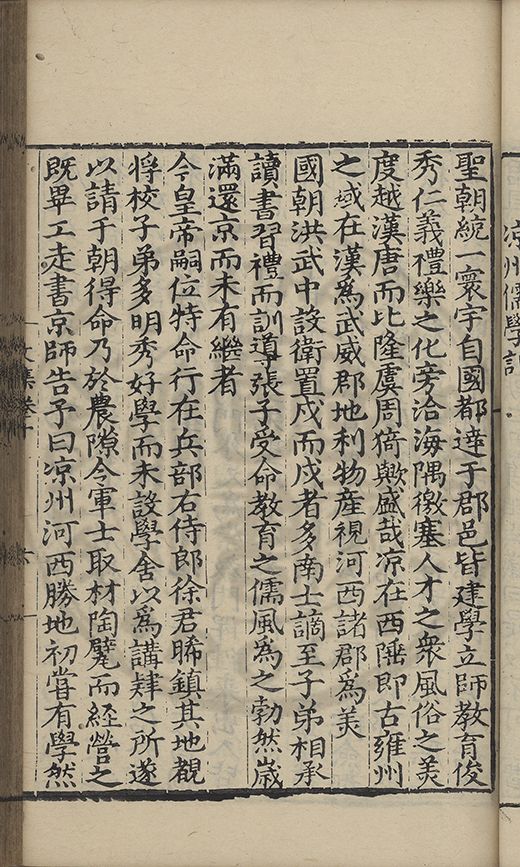 涼州儒學記
聖朝統一寰宇自國都達于郡邑皆建學立師教育俊
秀仁義禮樂之化旁洽海隅徼塞人才之衆風俗之美
度越漢唐而比隆虞周猗歟盛哉凉在西陲即古雍州
之域在漢爲武威郡地利物産視河西諸郡爲美
國朝洪武中設衛置戍而戍者多南士謫至子弟相承
讀書習禮而訓導張子受命教育之儒風爲之勃然嵗
滿還京而未有繼者
今皇帝嗣位特命行在兵部右侍郎徐君晞鎮其地覩
將校子弟多明秀好學而未設學舍以爲講肄之所遂
以請于朝得命乃於農隙令軍士取材陶甓而經營之
既畢工走書京師告予曰凉州河西勝地初嘗有學然
文集卷
六